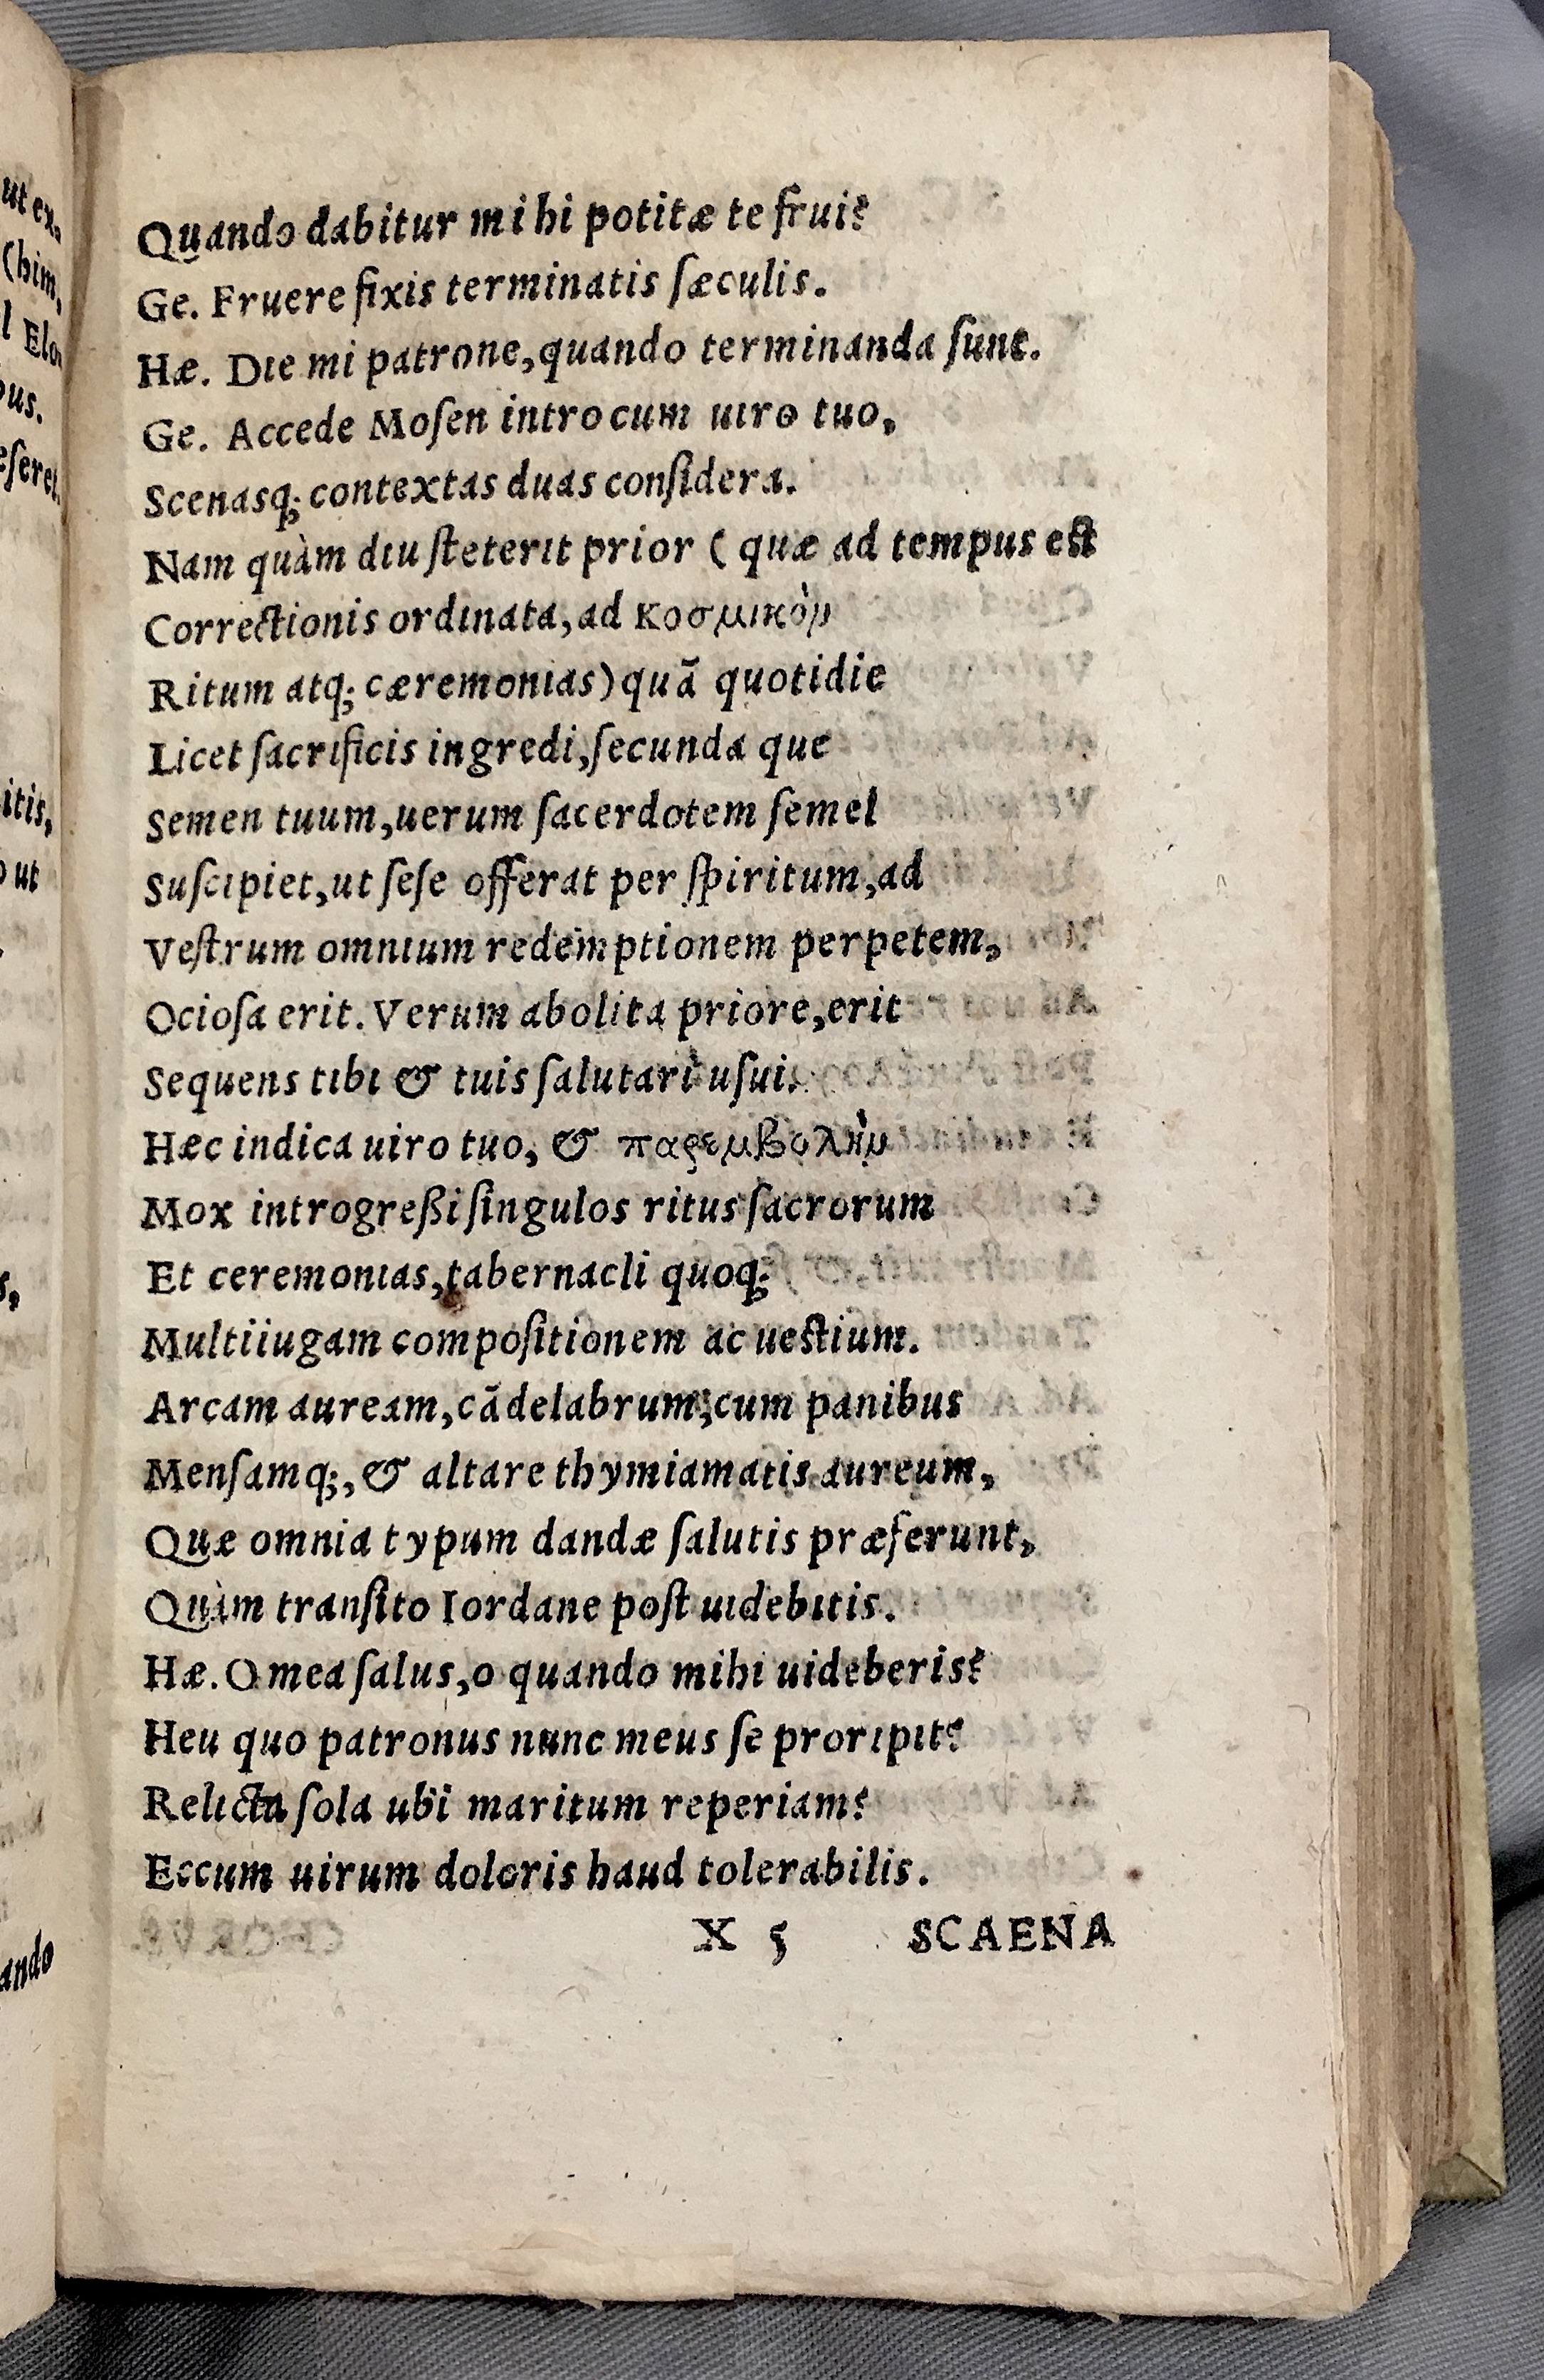 Quando dabitur mihi potitæ te frui?
Ge. Fruere fixis terminatis ſæculis.
Hæ. Dic mi patrone, quando terminanda ſunt.
Ge. Accede Moſen intro cum uiro tuo,
Scenasq; contextas duas conſidera.
Nam quàm diu ſteterit prior ( quæ ad tempus eſt
Correctionis ordinata, ad κοσμικὸν
Ritum atq; cæremonias) quã quotidie
Licet ſacrificis ingredi, ſecunda que
Semen tuum, uerum ſacerdotem ſemel
Suſcipiet, ut ſeſe offerat per ſpiritum, ad
Veſtrum omnium redemptionem perpetem,
Ocioſa erit. Verum abolita priore, erit
Sequens tibi & tuis ſalutari uſui.
Hæc indica uiro tuo, & παρεμβολὴν
Mox introgreßi ſingulos ritus ſacrorum
Et ceremonias, tabernacli quoq;
Multiiugam compoſitionem ac ueſtium.
Arcam auream, cãdelabrum, cum panibus
Menſamq;, & altare thymiamatis aureum,
Quæ omnia typum dandæ ſalutis præferunt,
Quàm tranſito Iordane poſt uidebitis.
Hæ. O mea ſalus, o quando mihi uideberis?
Heu quo patronus nunc meus ſe proripit?
Relicta ſola ubi maritum reperiam?
Eccum uirum doloris haud tolerabilis.
X 5 SCAENA